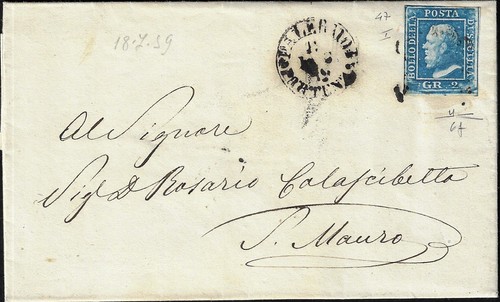 18.7.59
47
I
PALERMO
PARTENZA
BOLLO DELLA POSTA DI SICILIA
GR. 2
4
67
Al Signore
Sig.r D. Rosario Colascibetta
S. Mauro